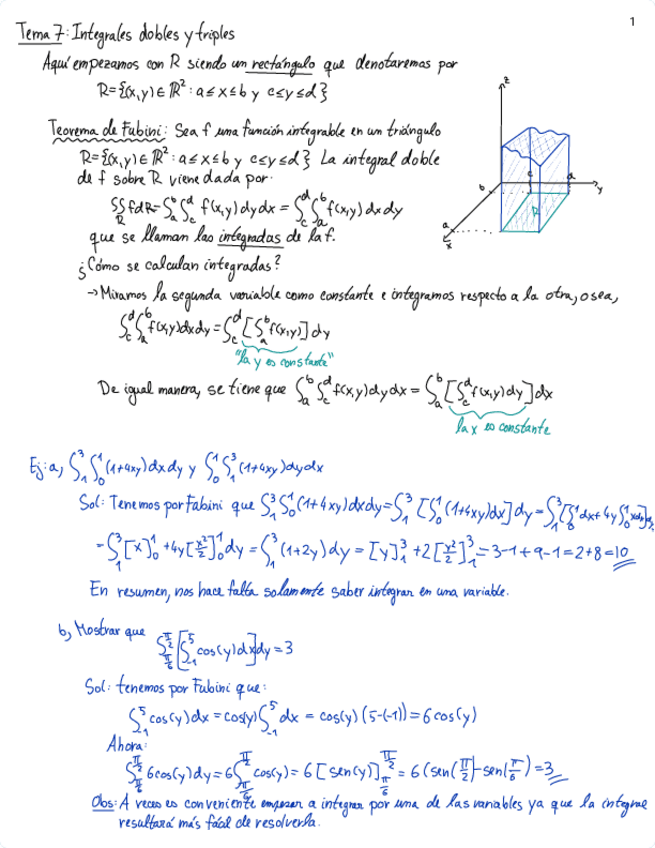 1
Tema 7: Integrales dobles y triples
Aquí empezamos con R siendo un rectángulo que denotaremos por
R={(x,y)∈ℝ²: a≤x≤b y c≤y≤d}
Teorema de Fubini: Sea f una función integrable en un triángulo
R={(x,y)∈ℝ²: a≤x≤b y c≤y≤d} La integral doble
de f sobre R viene dada por:
∬_R f dR=∫_a^b ∫_c^d f(x,y)dydx = ∫_c^d ∫_a^b f(x,y)dxdy
que se llaman las integradas de la f.
¿Cómo se calculan integradas?
→Miramos la segunda variable como constante e integramos respecto a la otra, o sea,
∫_c^d ∫_a^b f(x,y)dxdy = ∫_c^d [∫_a^b f(x,y)]dy
"la y es constante"
De igual manera, se tiene que ∫_a^b ∫_c^d f(x,y)dydx = ∫_a^b [∫_c^d f(x,y)dy]dx
la x es constante
z
b
c
d
y
R
a
x
Ej: a, ∫_1^3 ∫_0^1 (1+4xy)dxdy y ∫_0^1 ∫_1^3 (1+4xy)dydx
Sol: Tenemos por Fabini que ∫_1^3 ∫_0^1 (1+4xy)dxdy=∫_1^3 [∫_0^1 (1+4xy)dx]dy=∫_1^3 [∫_0^1 dx+4y∫_0^1 xdx]dy
=∫_1^3 [x]_0^1 +4y[x²/2]_0^1 dy = ∫_1^3 (1+2y)dy = [y]_1^3 +2[y²/2]_1^3 =3-1+9-1=2+8=10
En resumen, nos hace falta solamente saber integrar en una variable.
b, Mostrar que ∫_{π/6}^{π/2} [∫_{-1}^5 cos(y)dx]dy=3
Sol: tenemos por Fubini que:
∫_{-1}^5 cos(y)dx = cos(y)∫_{-1}^5 dx = cos(y)(5-(-1))=6cos(y)
Ahora:
∫_{π/6}^{π/2} 6cos(y)dy=6∫_{π/6}^{π/2} cos(y)=6[sen(y)]_{π/6}^{π/2} =6(sen(π/2)-sen(π/6))=3
Obs: A veces es conveniente empezar a integrar por una de las variables ya que la integral
resultará más fácil de resolverla.